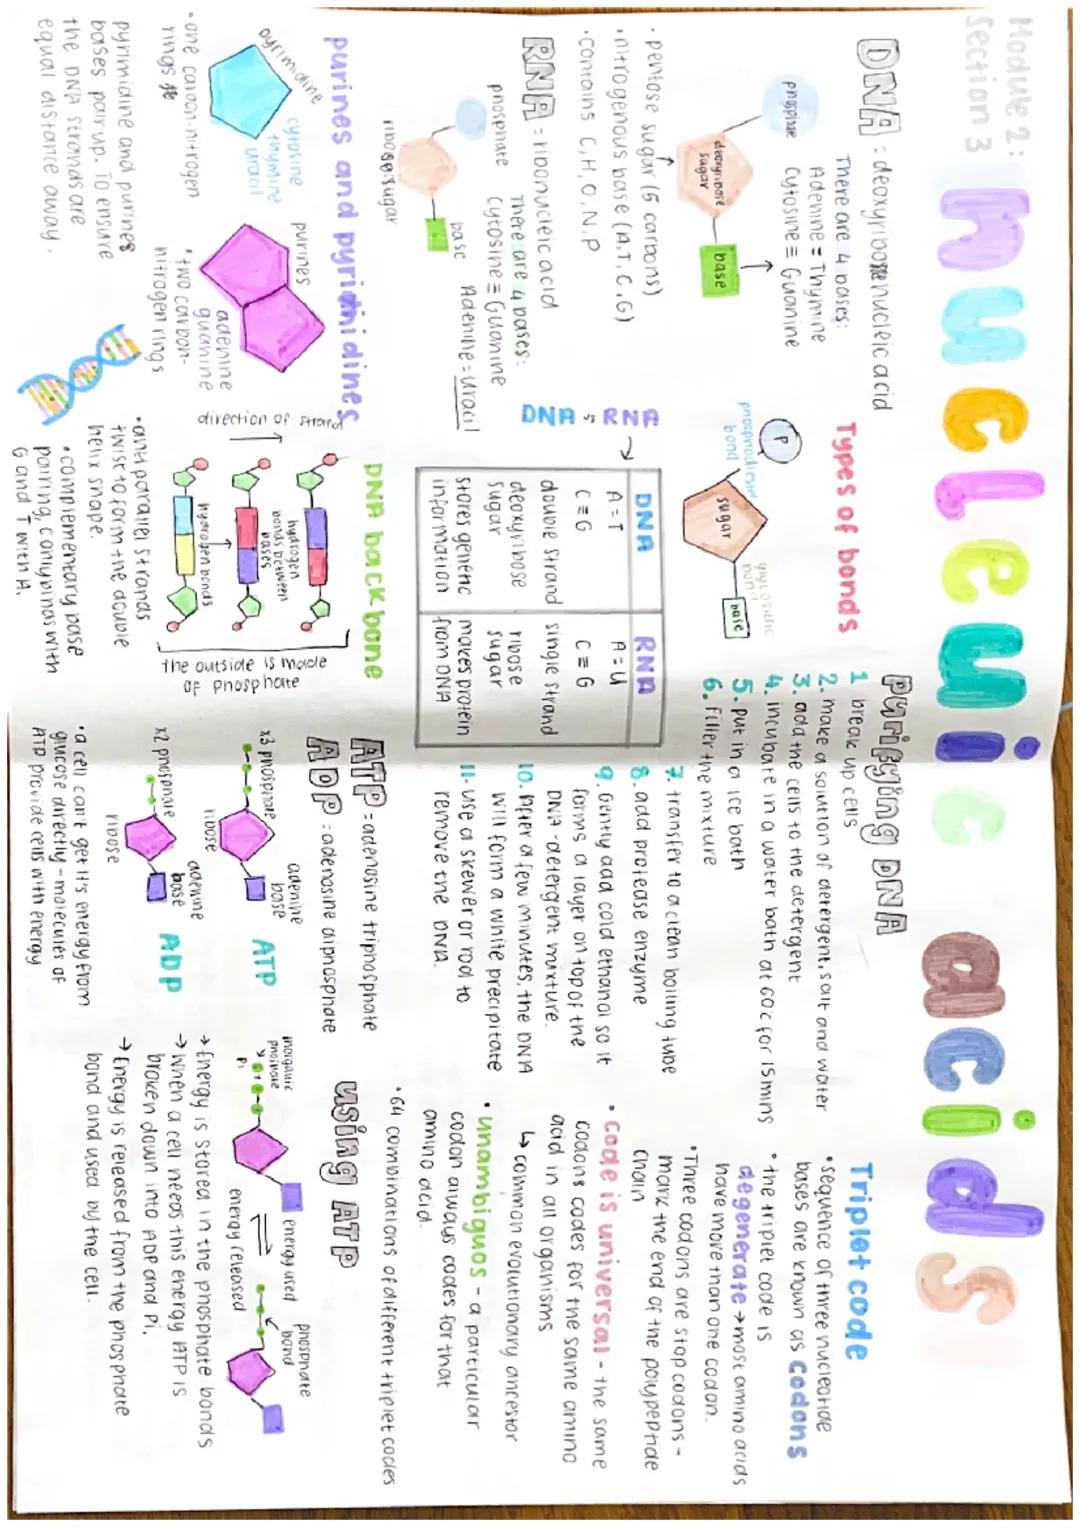 Module 2:
Section 3
nucleuic acids
DNA : deoxyribose nucleic acid
There are 4 bases:
Adenine = Thymine
Cytosine ≡ Guanine
phosphate
deoxyribose
sugar
base
· pentose sugar (5 carbons)
· nitrogenous base (A,T,C,G)
· contains C, H, O, N, P
RNA = ribonucleic acid
There are 4 bases:
Cytosine ≡ Guanine
Adenine = Uracil
phosphate
base
ribose sugar
purines and pyrimidines
pyrimidine
cytosine
thymine
uracil
· one carbon-nitrogen
rings
purines
adenine
guanine
· two carbon-
nitrogen rings
pyrimidine and purines
bases pair up. To ensure
the DNA strands are
equal distance away.
Types of bonds
P
phosphodiester
bond
sugar
glycosidic
bond
base
DNA vs RNA
DNA
RNA
A = T
A = U
C ≡ G
C ≡ G
double strand
single strand
deoxyribose
sugar
ribose
sugar
stores genetic
information
makes protein
from DNA
DNA backbone
direction of strand
hydrogen
bonds between
bases
hydrogen bonds
the outside is made
of phosphate
· antiparallel strands
twist to form the double
helix shape.
· complementary base
pairing, C only binds with
G and T with A.
purifying DNA
1. break up cells
2. make a solution of detergent, salt and water
3. add the cells to the detergent
4. incubate in a water bath at 60c for 15mins
5. put in a ice bath
6. Filter the mixture
7. transfer to a clean boiling tube
8. add protease enzyme
9. Gently add cold ethanol so it
forms a layer on top of the
DNA - detergent mixture.
10. After a few minutes, the DNA
will form a white precipitate
11. use a skewer or rod to
remove the DNA.
ATP = adenosine triphosphate
ADP : adenosine diphosphate
x3 phosphate
ribose
adenine
base
ATP
x2 phosphate
ribose
adenine
base
ADP
· a cell can't get it's energy from
glucose directly - molecules of
ATP provide cells with energy
Triplet code
· sequence of three nucleotide
bases are known as codons
· the triplet code is
degenerate → most amino acids
have more than one codon.
· Three codons are stop codons -
mark the end of the polypeptide
chain
· Code is universal - the same
codons codes for the same amino
acid in all organisms
↳ common evolutionary ancestor
· unambiguos - a particular
codon always codes for that
amino acid.
· 64 combinations of different triplet codes
using ATP
inorganic
Pi
energy used
energy released
phosphate
bond
→ Energy is stored in the phosphate bonds
→ when a cell needs this energy ATP is
broken down into ADP and Pi.
→ Energy is released from the phosphate
bond and used by the cell.